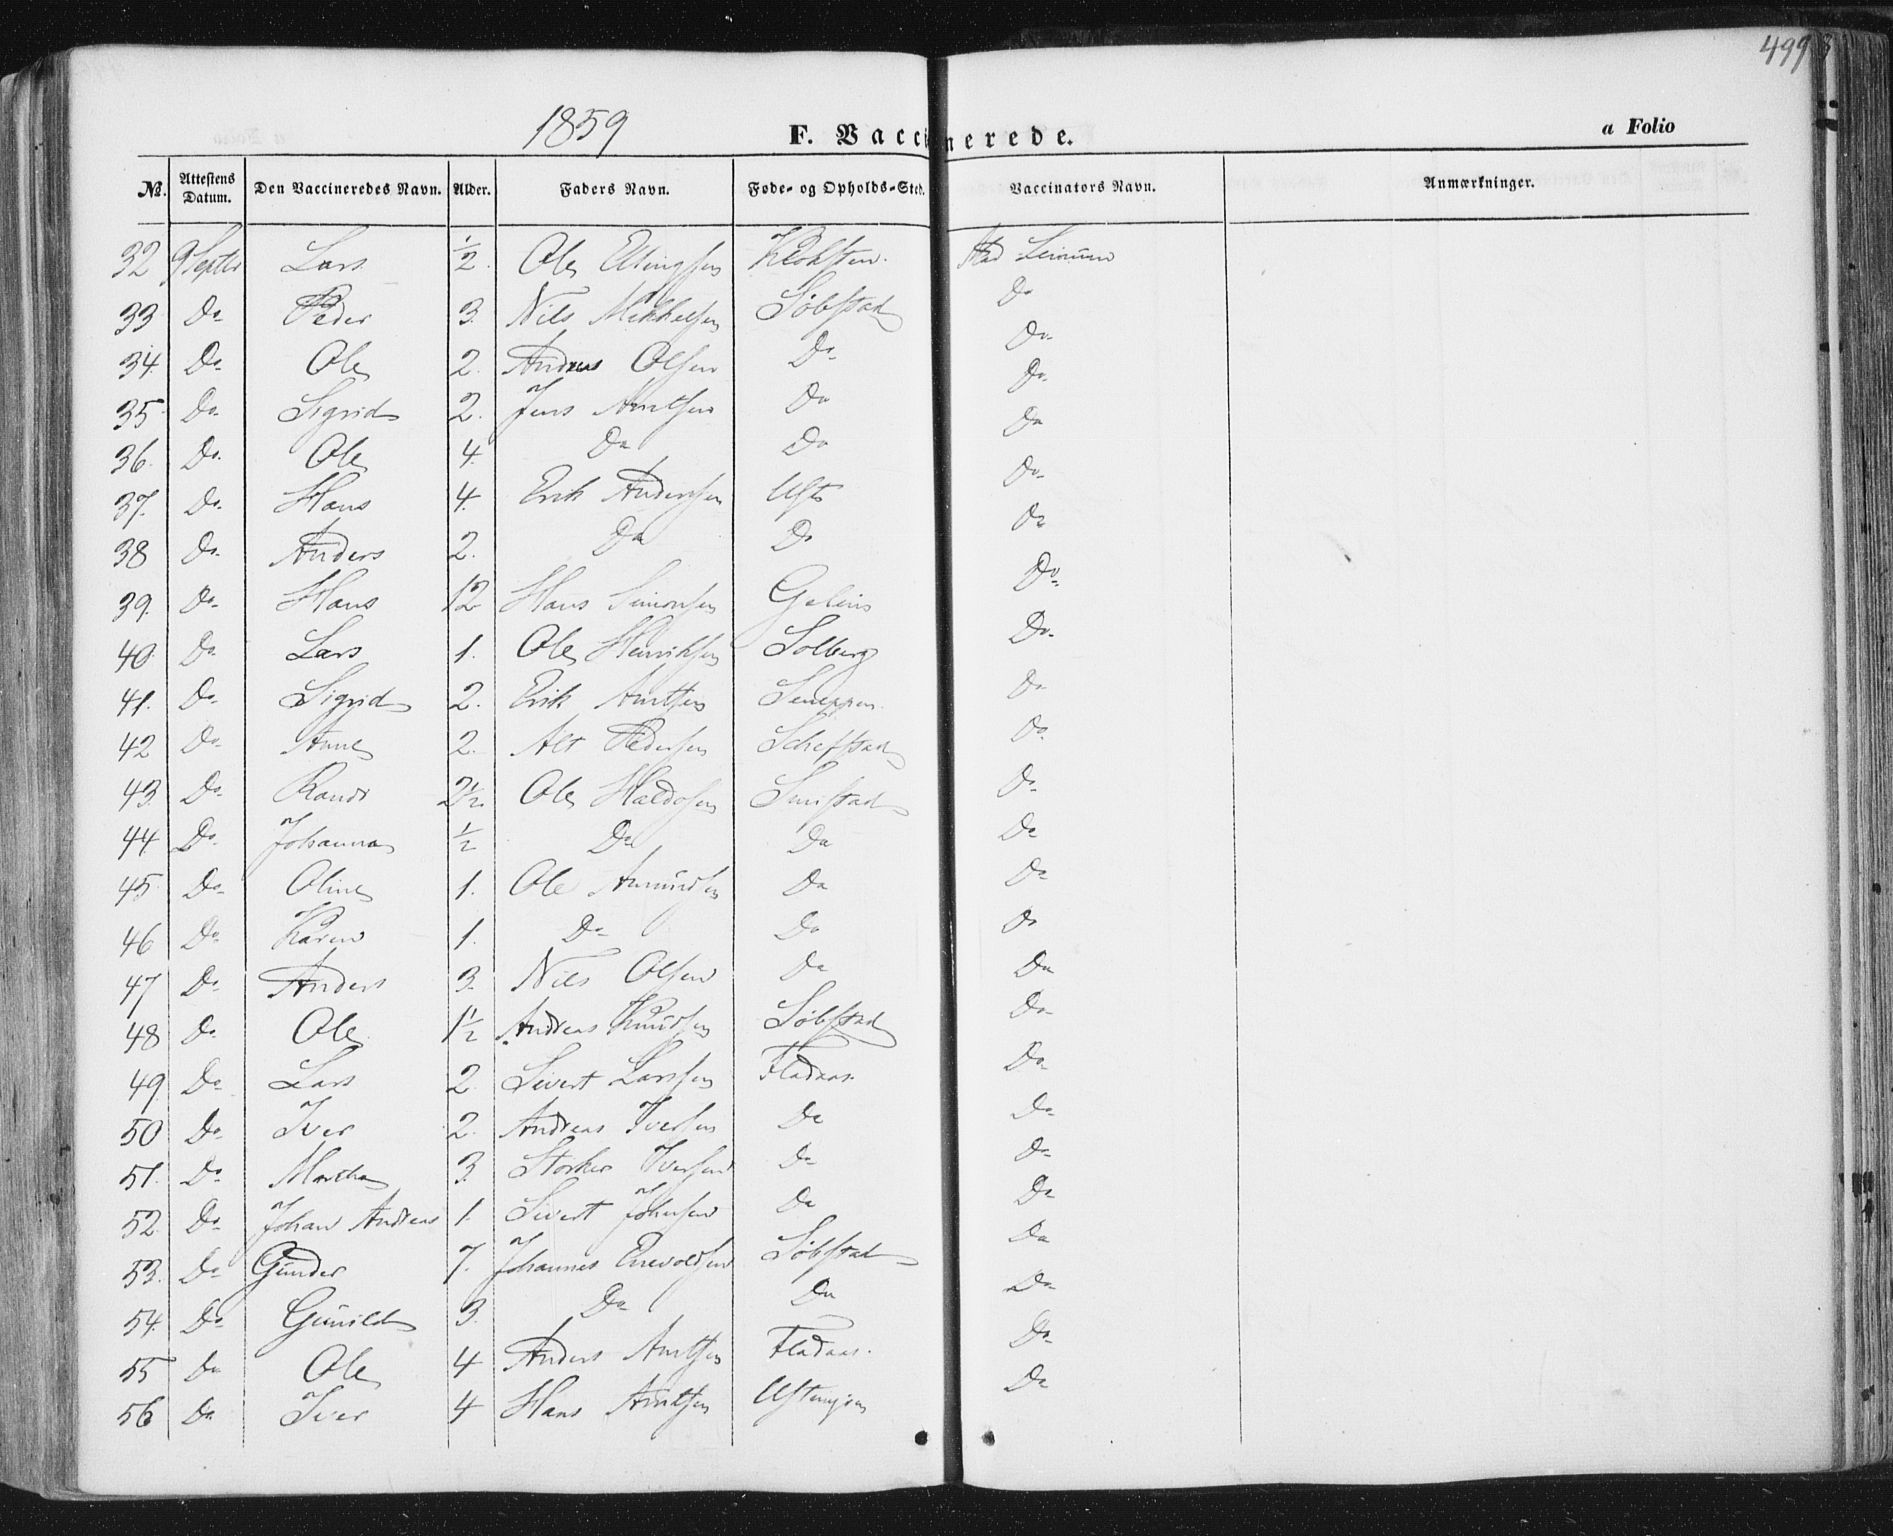 499
1859 F. Vaccinerede. a Folio
No. Attestens Datum. Den Vaccineredes Navn. Alder. Faders Navn. Føde- og Opholds-Sted. Vaccinators Navn. Anmærkninger.
32 9 Septbr Lars 1/2 Ole Ellingsen
33 Do Peder 3. Nils Mikkelsen Søbstad Do
34. Do Ole 2. Andreas Olsen Do Do
35 Do Sigrid 2. Jens Arntsen Do Do
36. Do. Ole 4. Do Do Do
37. Do. Hans 4. Erik Anderssen Usts Do
38 Do. Anders 2. Do Do Do
39. Do Hans 12 Hans Simonsen Do
40. Do Lars 1. Ole Henriksen Solberg Do
41. Do Sigrid 2. Erik Arntsen Do
42 Do Anne 2. Alt Pedersen Do
43. Do Randi 2 1/2. Ole Haldosen Smistad Do
44 Do. Johanna 1/2 Do Do Do
45. Do Oline 1. Ole Amundsen Do Do
46 Do Karen 1. Do Do Do
47 Do Anders 3. Nils Olsen Do Do
48 Do Ole 1 1/2 Andreas Knudsen Søbstad Do
49. Do Lars 2. Sivert Larssen Fladaas. Do
50 Do Iver 2. Andreas Iversen Do Do
51. Do Martha 3. Storker Iversen Do Do
52. Do Johan Andreas 1. Sivert Johnsen Do Do
53. Do Gunder 7. Johannes Enevoldsen Søbstad Do
54. Do Gunild 3. Do Do Do
55 Do Ole 4 Anders Arntsen Fladaas. Do
56 Do Iver 4 Hans Arntsen Do